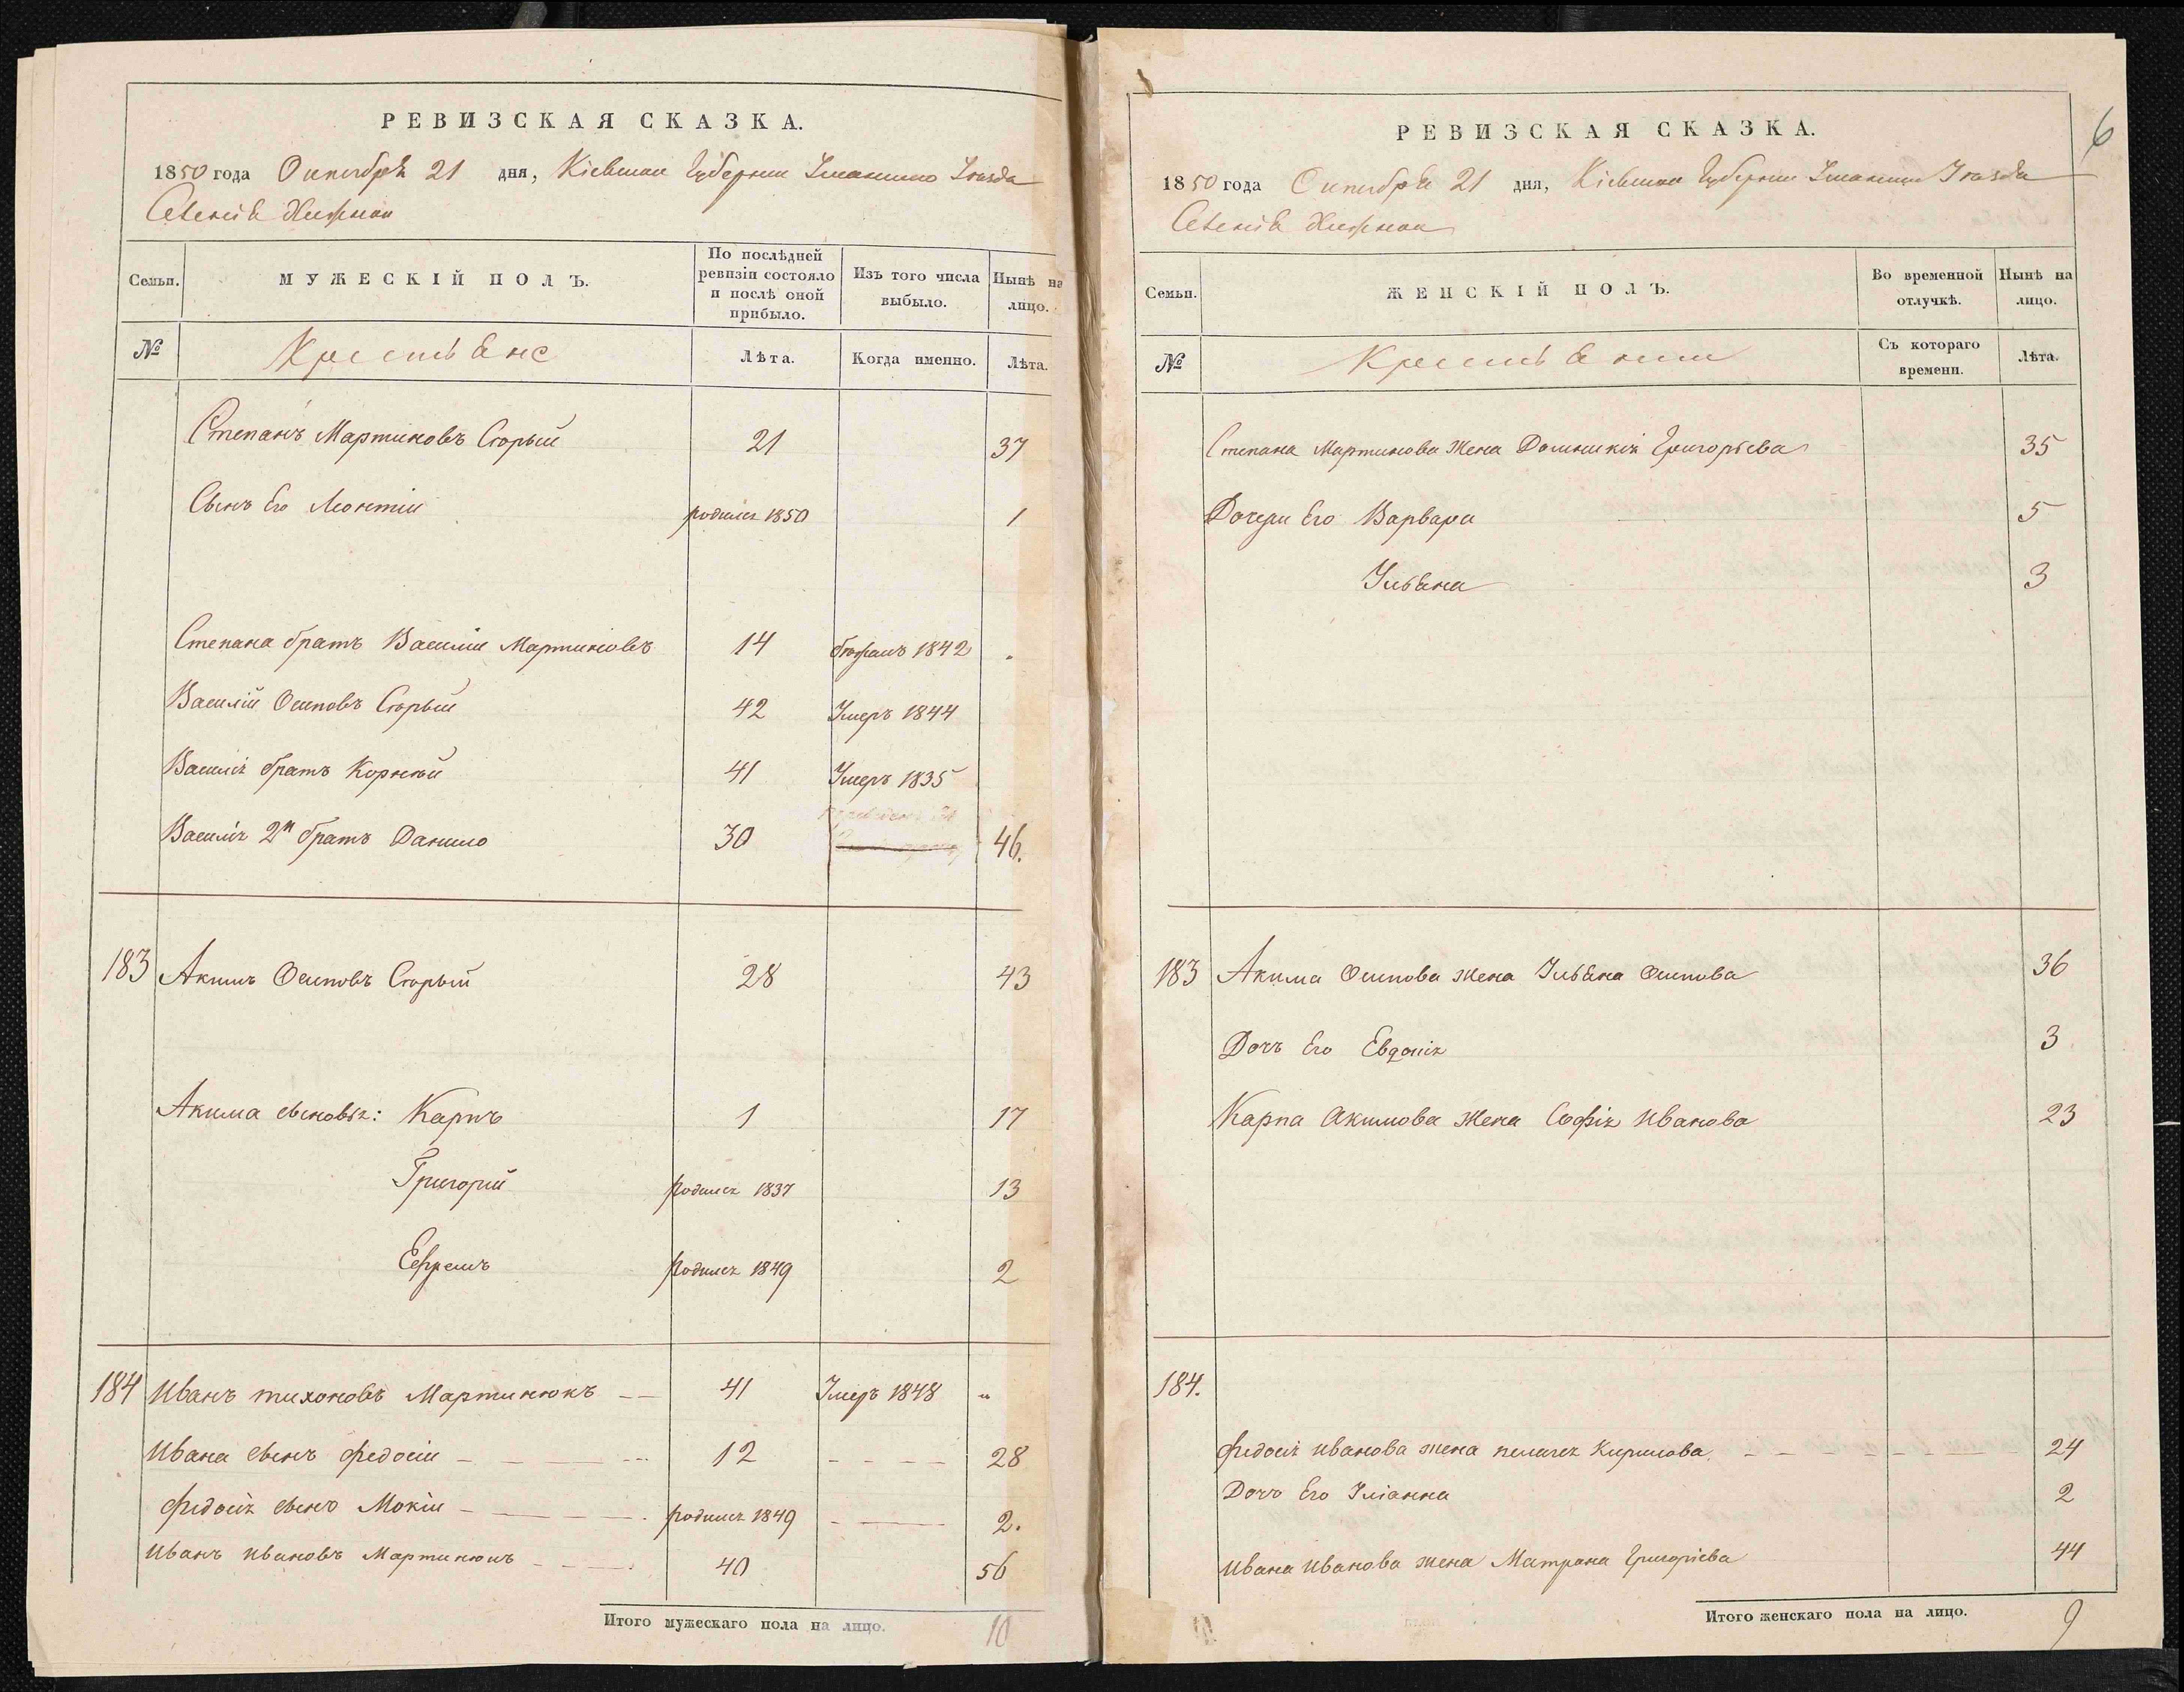 РЕВИЗСКАЯ СКАЗКА.
1850 года Октября 21 дня, Кіевской Губерніи Уманскаго Уезда
Крестьяне
Семьи.
МУЖЕСКІЙ ПОЛЪ.
По послѣдней ревизіи состояло и послѣ оной прибыло.
Изъ того числа выбыло.
Нынѣ на лицо.
№
Лѣта.
Когда именно.
Лѣта.
Степанъ Мартиновъ Скорый 21 37
Сынъ Его Леонтій родился 1850 1
Степана братъ Василій Мартиновъ 14 бежалъ 1842 "
Василій Осиповъ Скорый 42 Умеръ 1844
Василія братъ Корнѣй 41 Умеръ 1835
Василія 2й братъ Данило 30 46.
183 Акимъ Осиповъ Скорый 28 43
Акима сыновья: Карпъ 1 17
Григорій родился 1837 13
Ефремъ родился 1849 2
184 Иванъ тихоновъ Мартинюкъ 41 Умеръ 1848 "
Ивана сынъ федосій 12 28
федосія сынъ Мокій родился 1849 2.
Иванъ Ивановъ Мартинюкъ 40 56
Итого мужескаго пола на лицо. 10
6
РЕВИЗСКАЯ СКАЗКА.
1850 года Октября 21 дня, Кіевской Губерніи Уманскаго Уезда
Семьи.
ЖЕНСКІЙ ПОЛЪ.
Во временной отлучкѣ.
Нынѣ на лицо.
№
Съ котораго времени.
Лѣта.
Степана Мартинова Жена Домникія Григорьева 35
Дочери Его Варвара 5
Ульяна 3
183 Акима Осипова жена Ульяна Осипова 36
Дочь Его Евдокія 3
Карпа Акимова Жена Софія Иванова 23
184.
федосія Иванова жена пелагея Кирилова 24
Дочь Его Уліанна 2
Ивана Иванова жена Матрона Григорієва 44
Итого женскаго пола на лицо. 9